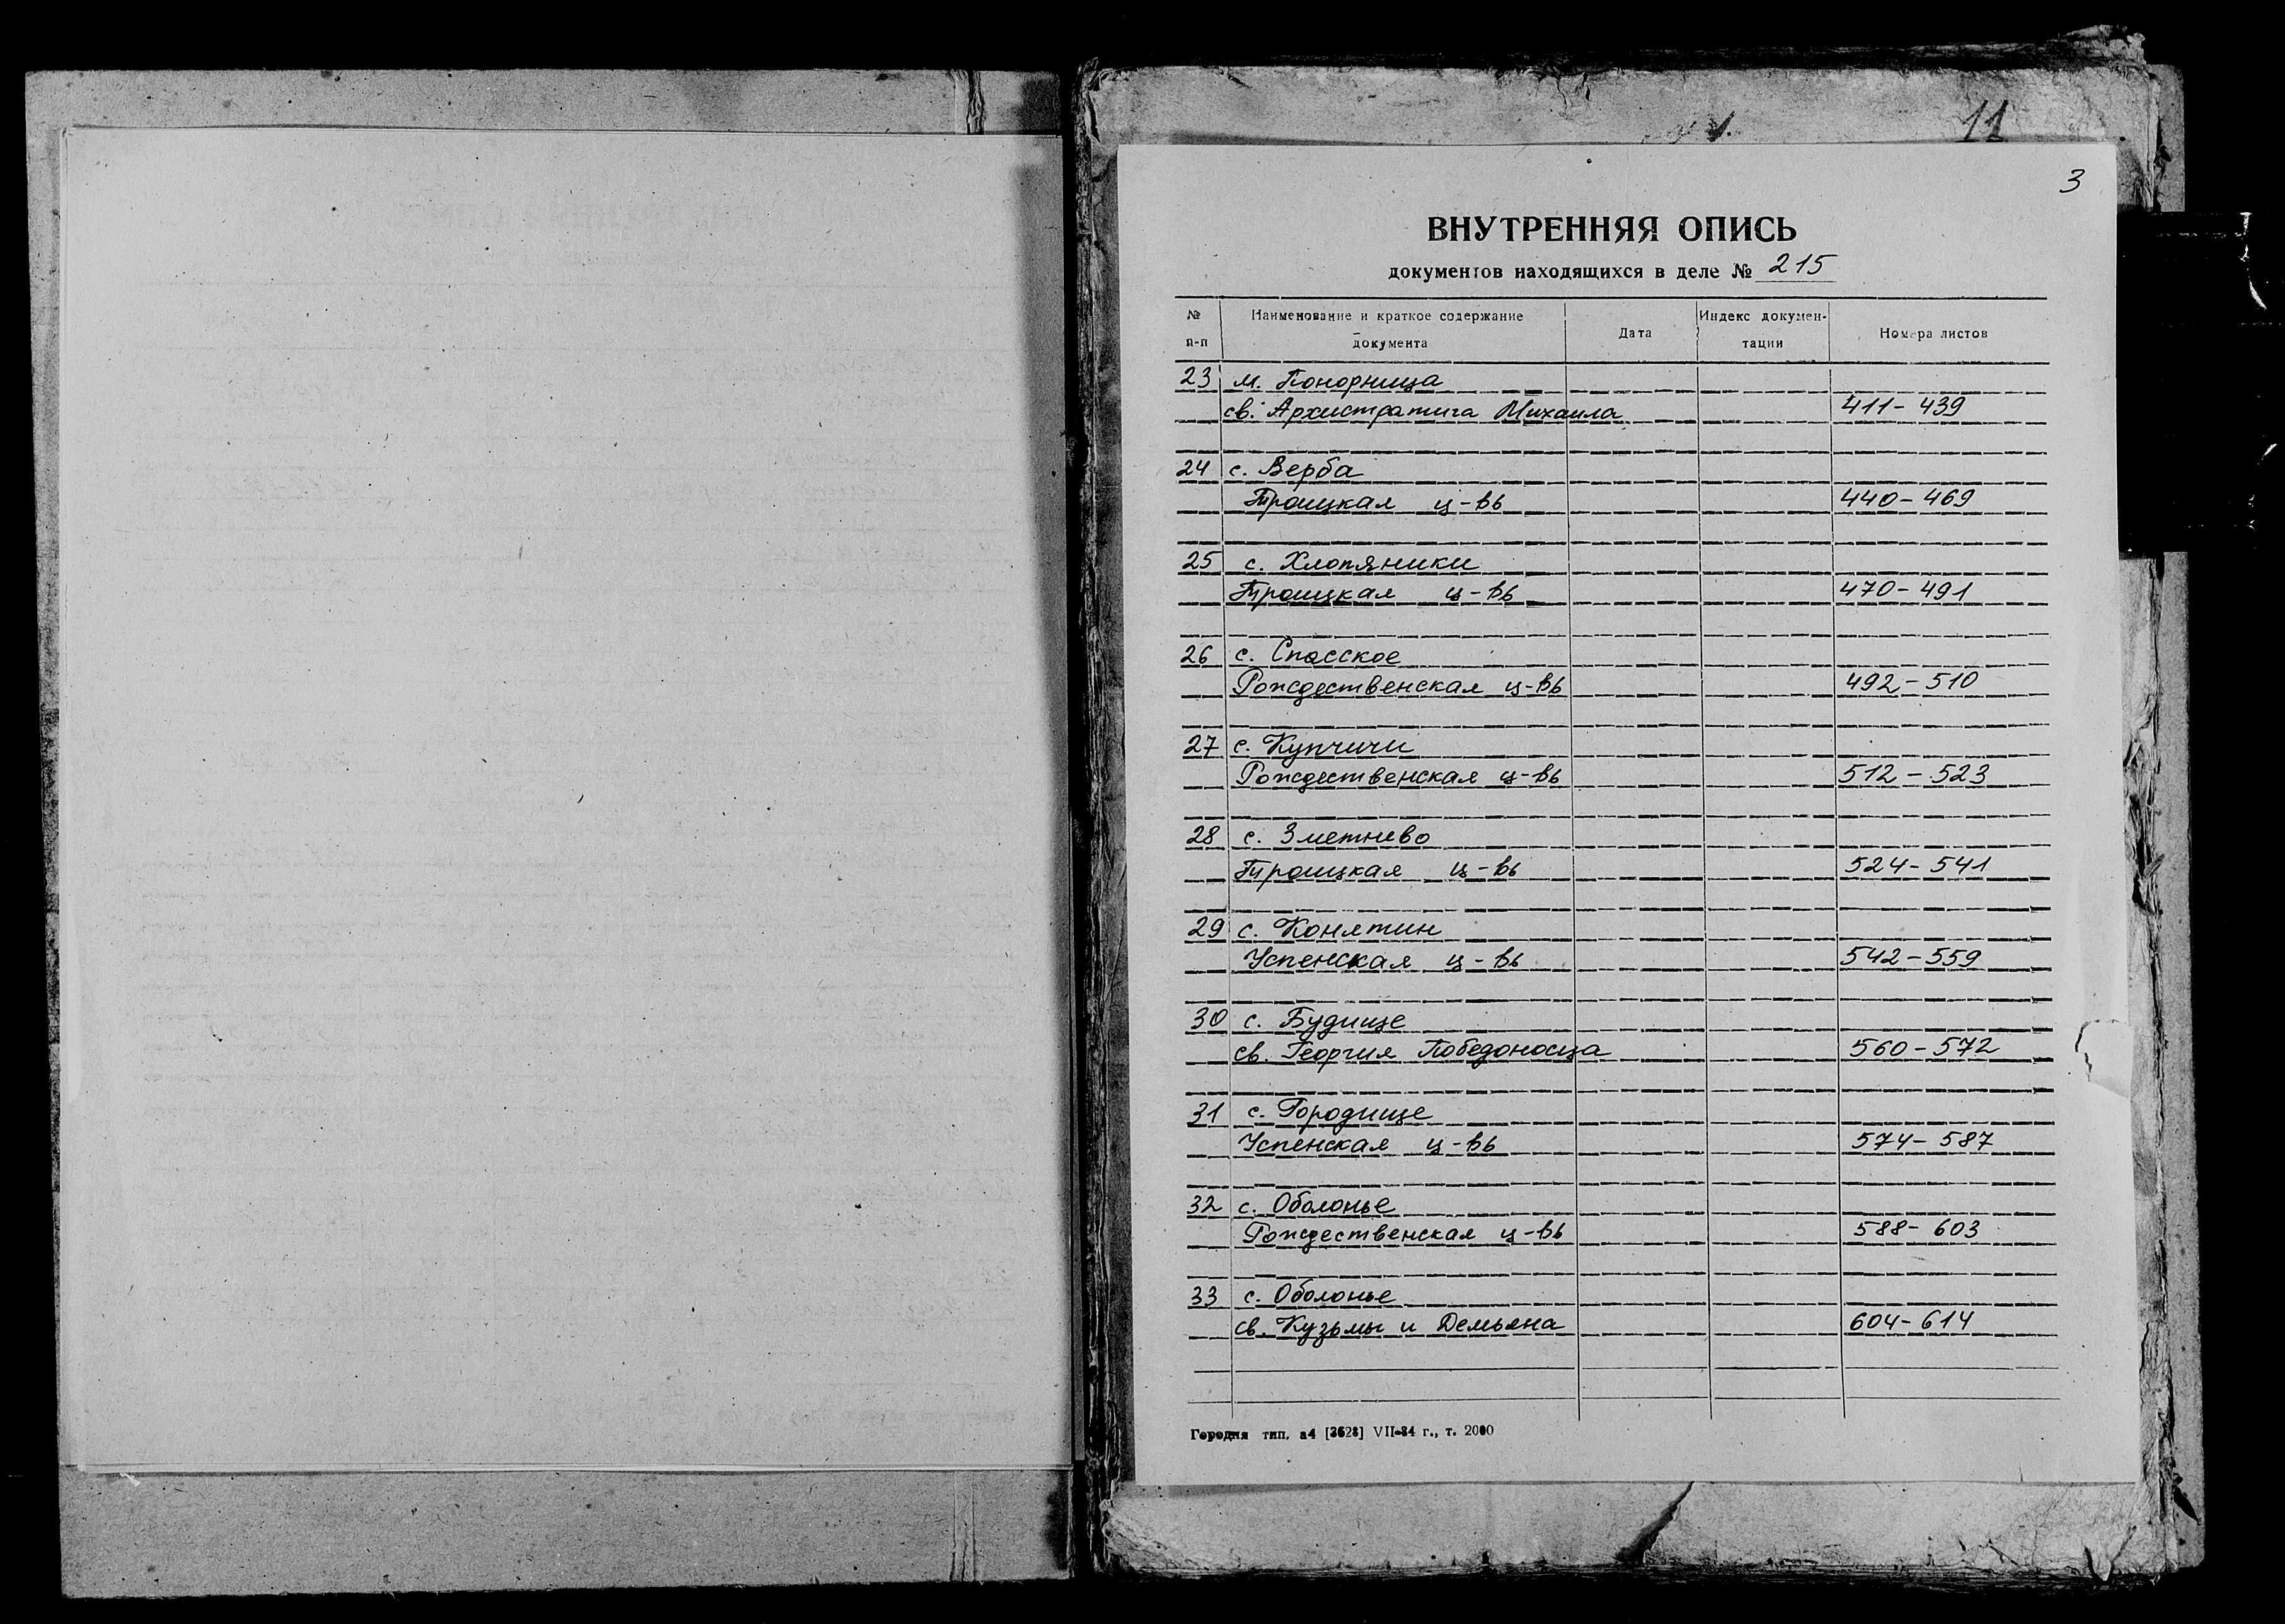 11
3
ВНУТРЕННЯЯ ОПИСЬ
документов находящихся в деле № 215
№ п-п Наименование и краткое содержание документа Дата Индекс документации Номера листов
23 м. Понорница
св. Архистратига Михаила 411-439
24 с. Верба
Троицкая ц-вь 440-469
25 с. Хлопяники
Троицкая ц-вь 470-491
26 с. Спасское
Рождественская ц-вь 492-510
27 с. Купчичи
Рождественская ц-вь 512-523
28 с. Зметнево
Троицкая ц-вь 524-541
29 с. Конятин
Успенская ц-вь 542-559
30 с. Будище
св. Георгия Победоносца 560-572
31 с. Городище
Успенская ц-вь 574-587
32 с. Оболонье
Рождественская ц-вь 588-603
33 с. Оболонье
св. Кузьмы и Демьяна 604-614
Городня тип. а4 [3628] VII-84 г., т. 2000